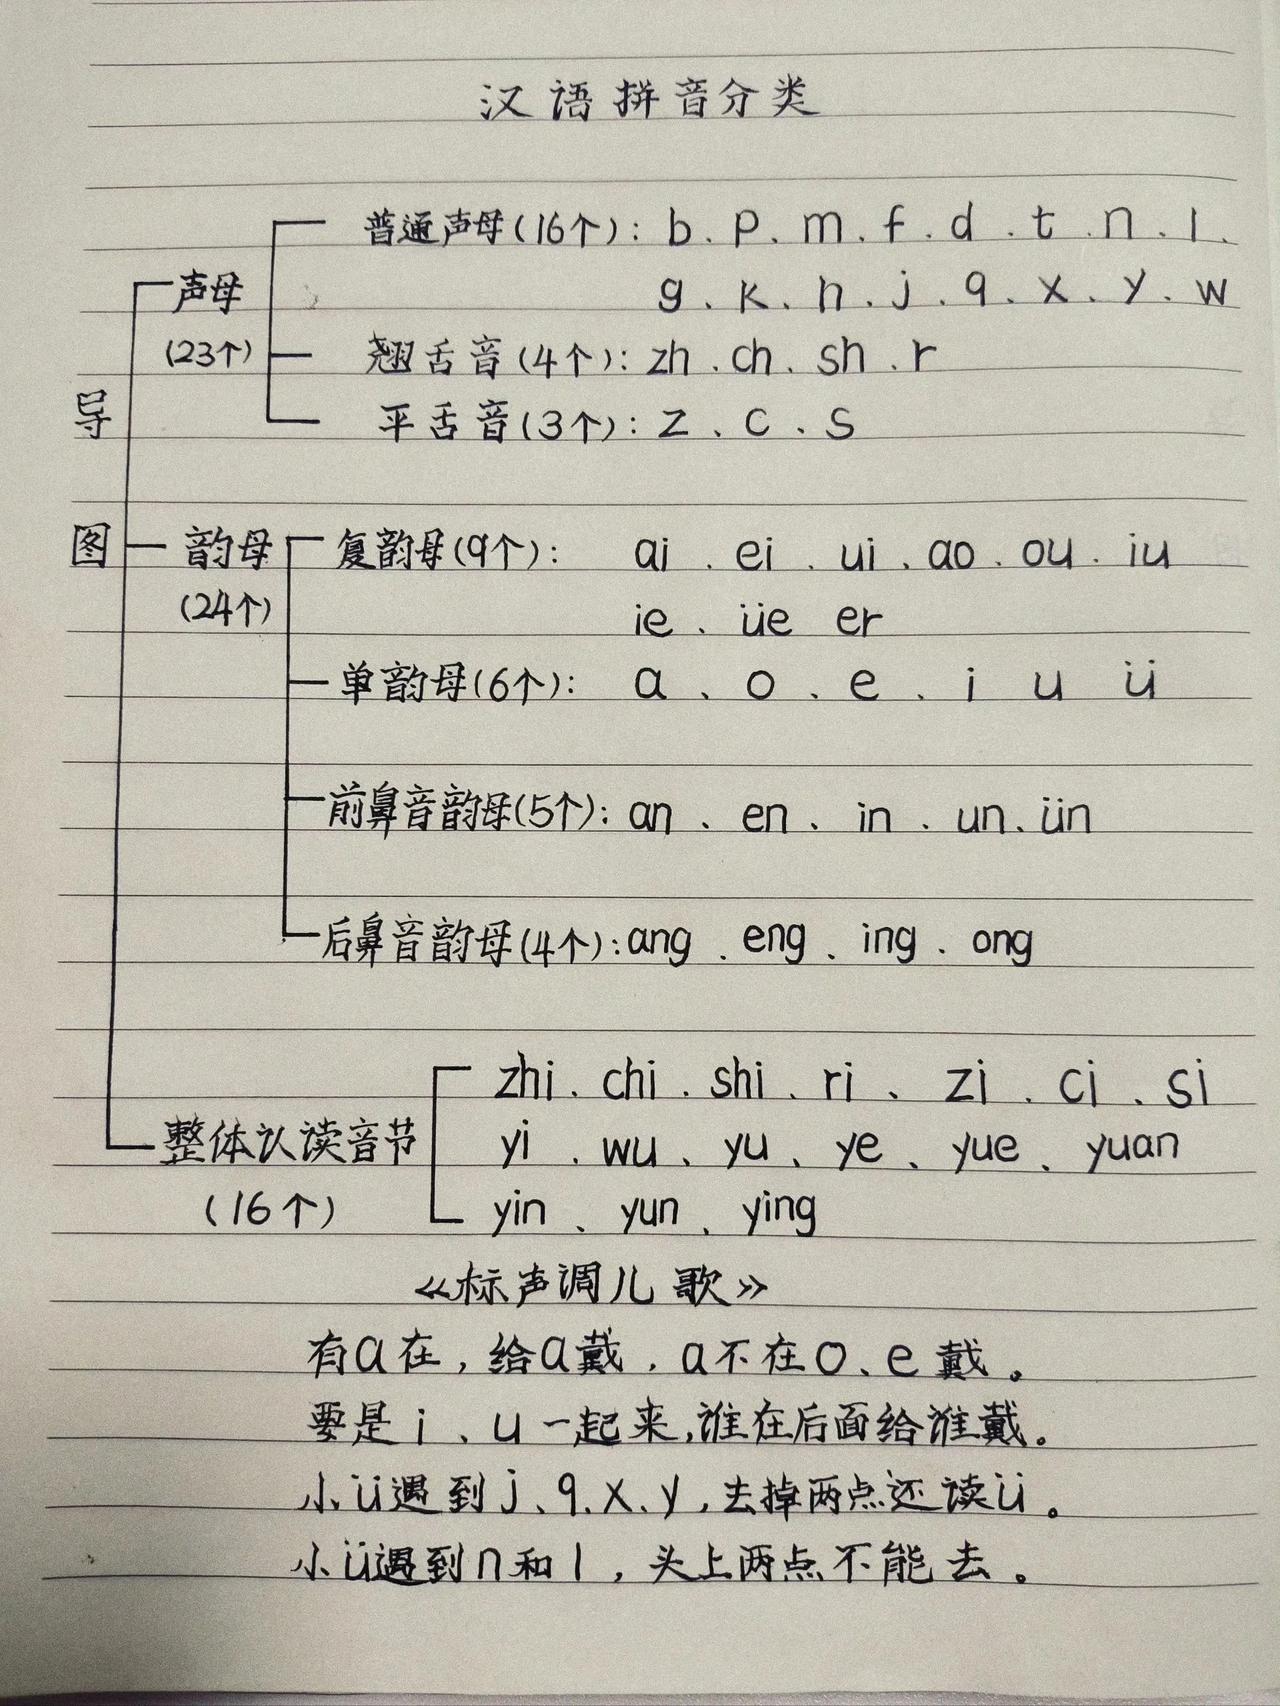 汉语拼音分类
普通声母(16个): b. p. m. f. d. t. n. l.
声母
g. k. h. j. q. x. y. w
(23个)
翘舌音(4个): zh. ch. sh. r
导
平舌音(3个): z. c. s
图
韵母
复韵母(9个): ai. ei. ui. ao. ou. iu
(24个)
ie. üe er
单韵母(6个): a. o. e. i u ü
前鼻音韵母(5个): an. en. in. un. ün
后鼻音韵母(4个): ang. eng. ing. ong
zhi. chi. shi. ri. zi. ci. si
整体认读音节
yi. wu、yu、ye、yue、yuan
(16个)
yin、yun、ying
《标声调儿歌》
有a在,给a戴,a不在o、e戴。
要是i、u一起来,谁在后面给谁戴。
小ü遇到j、q、x、y,去掉两点还读ü。
小ü遇到n和l,头上两点不能去。